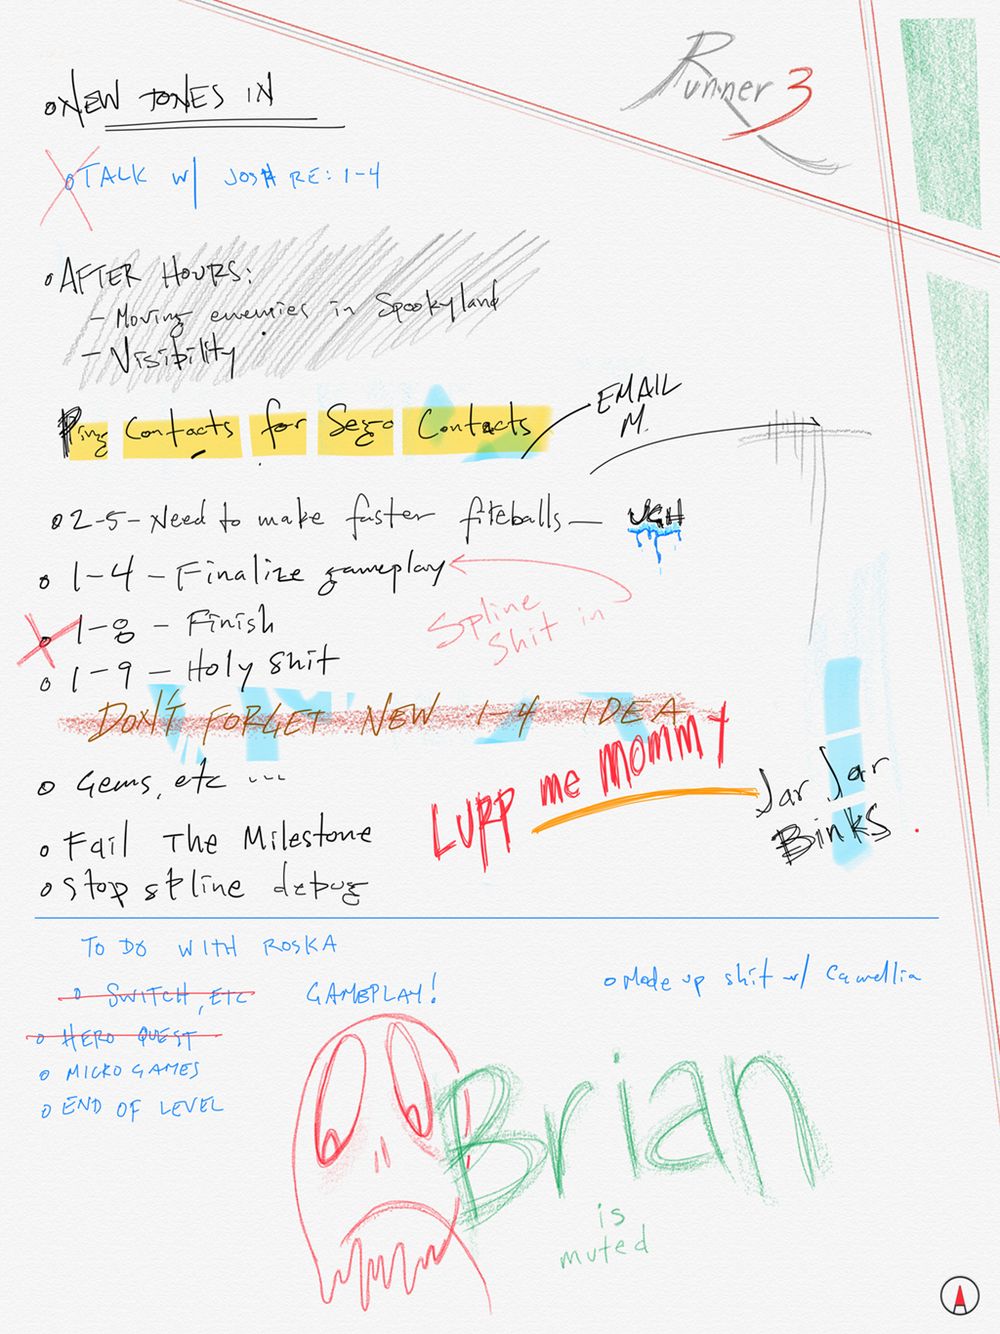 Runner 3
NEW TONES IN
TALK w/ JOSH RE: 1-4
AFTER HOURS:
- Moving enemies in Spookyland
- Visibility
Ping Contacts for Sego Contacts
EMAIL
M.
2-5 - Need to make faster fireballs - UGH
1-4 - Finalize gameplay
Spline
Shit in
1-8 - Finish
1-9 - Holy shit
DON'T FORGET NEW 1-4 IDEA
Gems, etc ...
LUPP me mommy
Jar Jar
Binks
Fail The Milestone
Stop spline debug
TO DO WITH ROSKA
SWITCH, ETC
GAMEPLAY!
Made up shit w/ Camellia
HERO QUEST
MICRO GAMES
END OF LEVEL
Brian
is
muted